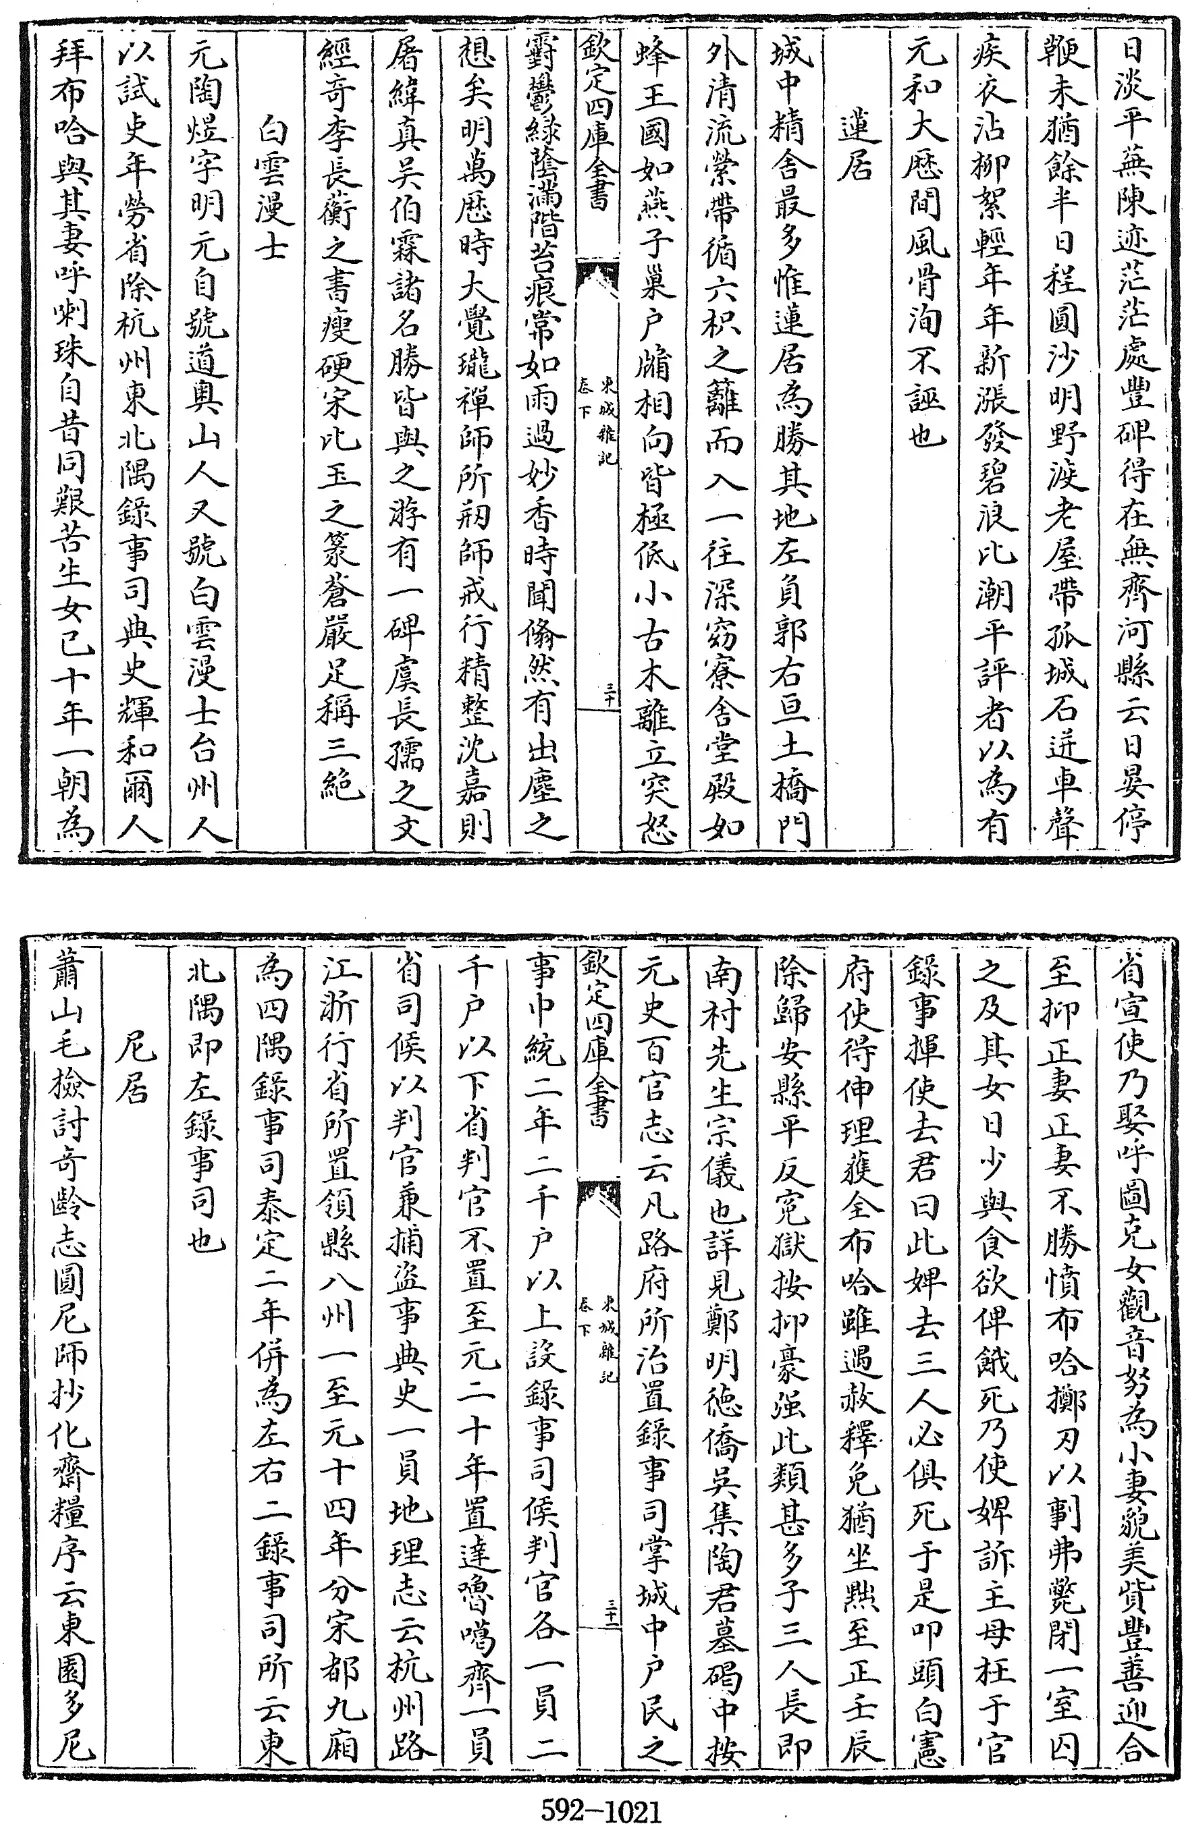 日淡平蕪陳迹茫茫處豐碑得在無齊河縣云日晏停
鞭未猶餘半日程圓沙明野渡老屋帶孤城石迸車聲
疾衣沾柳絮輕年年新漲發碧浪比潮平評者以為有
元和大厯間風骨洵不誣也
蓮居
城中精舍最多惟蓮居為勝其地左負郭右亘土橋門
外清流縈帶循六枳之籬而入一往深窈寮舍堂殿如
蜂王國如燕子巢户牗相向皆極低小古木離立突怒
欽定四庫全書
東城雜記
卷下
三十
霨鬱緑蔭滿階苔痕常如雨過妙香時聞翛然有出塵之
想矣明萬厯時大覺瓏禪師所剏師戒行精整沈嘉則
屠緯真吴伯霖諸名勝皆與之游有一碑虞長孺之文
經奇李長蘅之書瘦硬宋比玉之篆蒼嚴足稱三絶
白雲漫士
元陶煜字明元自號道奥山人又號白雲漫士台州人
以試吏年勞省除杭州東北隅錄事司典史輝和爾人
拜布哈與其妻呼喇珠自昔同艱苦生女已十年一朝為
省宣使乃娶呼圖克女觀音努為小妻貌美貲豐善迎合
至抑正妻正妻不勝憤布哈擲刃以剚弗斃閉一室囚
之及其女日少與食欲俾餓死乃使婢訴主母枉于官
錄事揮使去君曰此婢去三人必俱死于是叩頭白憲
府使得伸理蓷全布哈雖遇赦釋免猶坐黜至正壬辰
除歸安縣平反寃獄按抑豪强此類甚多子三人長即
南村先生宗儀也詳見鄭明德僑吳集陶君墓碣中按
元史百官志云凡路府所治置錄事司掌城中户民之
欽定四庫全書
東城雜記
卷下
三十一
事中統二年二千户以上設錄事司候判官各一員二
千户以下省判官不置至元二十年置達嚕噶齊一員
省司候以判官兼捕盜事典史一員地理志云杭州路
江浙行省所置領縣八州一至元十四年分宋都九廂
為四隅錄事司泰定二年併為左右二錄事司所云東
北隅即左錄事司也
尼居
蕭山毛檢討奇齡志圓尼師抄化齋糧序云東園多尼
592-1021